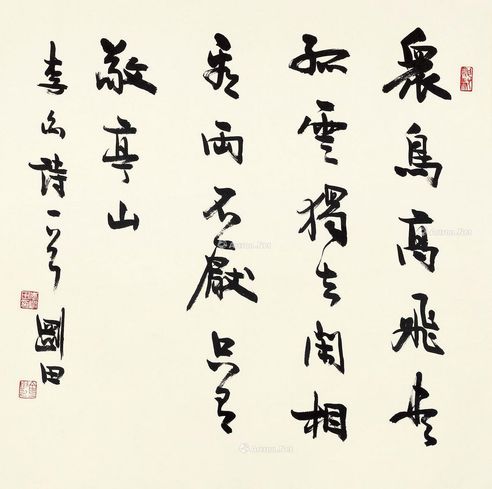 衆鳥高飛尽
孤雲獨去閑相
看兩不厭只有
敬亭山
李白詩一首 田
Artron.Net